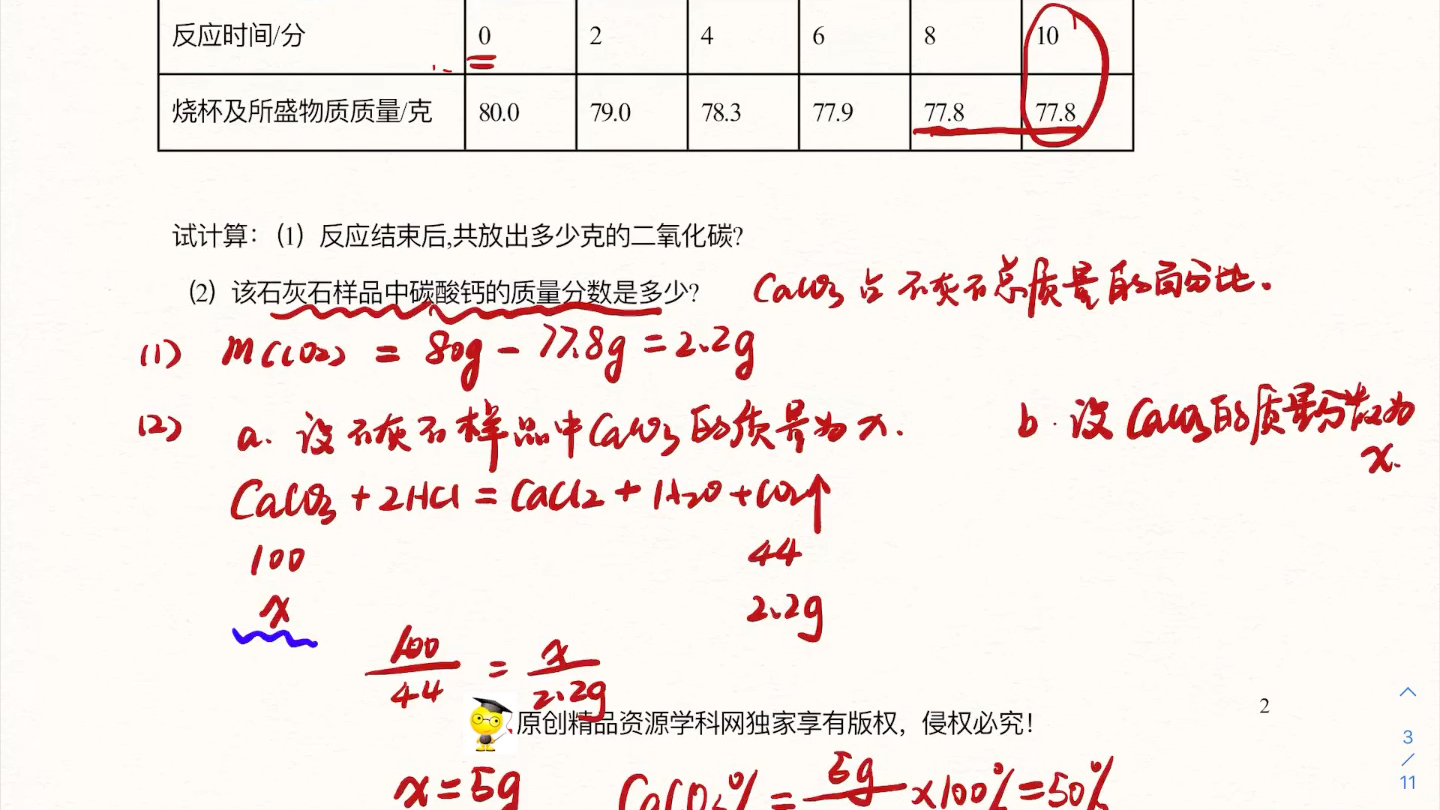 反应时间/分 0 2 4 6 8 10
烧杯及所盛物质质量/克 80.0 79.0 78.3 77.9 77.8 77.8
试计算：(1) 反应结束后,共放出多少克的二氧化碳?
(2) 该石灰石样品中碳酸钙的质量分数是多少?
CaCO3占石灰石总质量的百分比.
(1) m(CO2) = 80g - 77.8g = 2.2g
(2) a. 设石灰石样品中CaCO3的质量为x.
b. 设CaCO3的质量分数为
x.
CaCO3 + 2HCl = CaCl2 + H2O + CO2↑
100 44
x 2.2g
100/44 = x/2.2g
原创精品资源学科网独家享有版权，侵权必究！
2
3
/
11
x = 5g CaCO3% = 5g/ ×100% = 50%